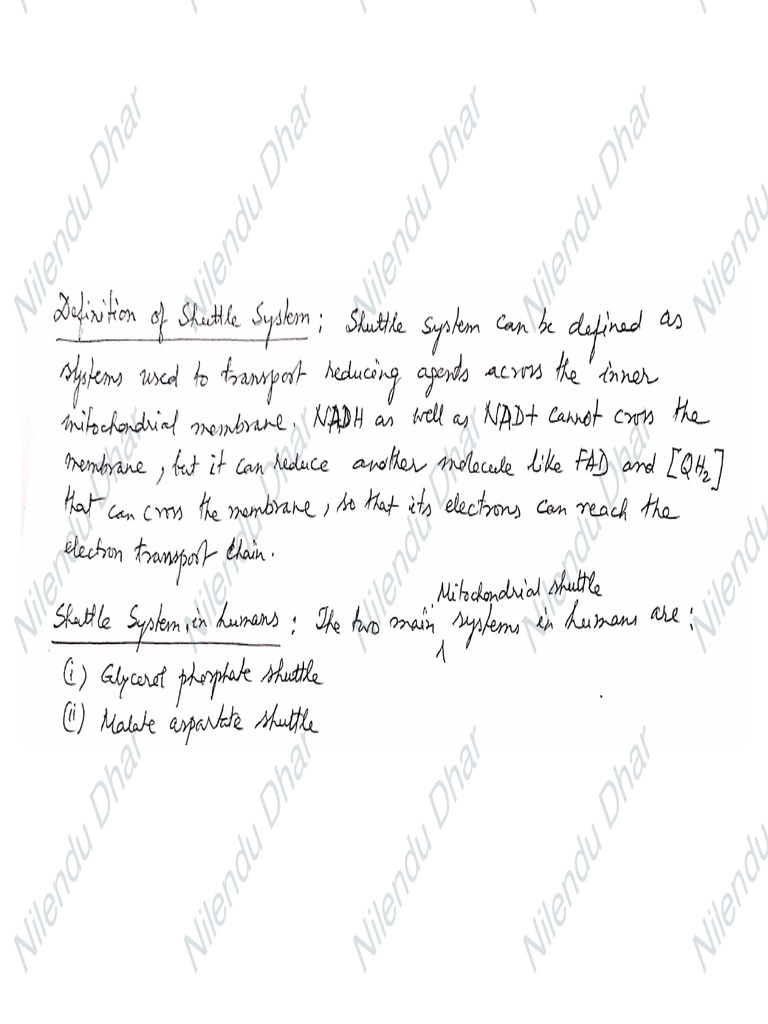 Definition of Shuttle System : Shuttle system can be defined as
systems used to transport reducing agents across the inner
mitochondrial membrane. NADH as well as NAD+ cannot cross the
membrane, but it can reduce another molecule like FAD and [QH₂]
that can cross the membrane, so that its electrons can reach the
electron transport chain.
Mitochondrial shuttle
Shuttle System, in humans : The two main systems in humans are :
(i) Glycerol phosphate shuttle
(ii) Malate aspartate shuttle
Nilendu Dhar Nilendu Dhar Nilendu Dhar Nilendu Dhar
Nilendu Dhar Nilendu Dhar Nilendu Dhar Nilendu Dhar
Nilendu Dhar Nilendu Dhar Nilendu Dhar Nilendu Dhar